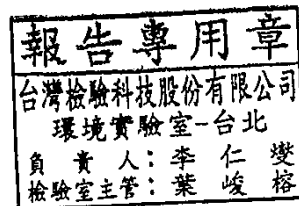 報告專用章
台灣檢驗科技股份有限公司
環境實驗室-台北
負責人：李仁燮
檢驗室主管：葉峻榕